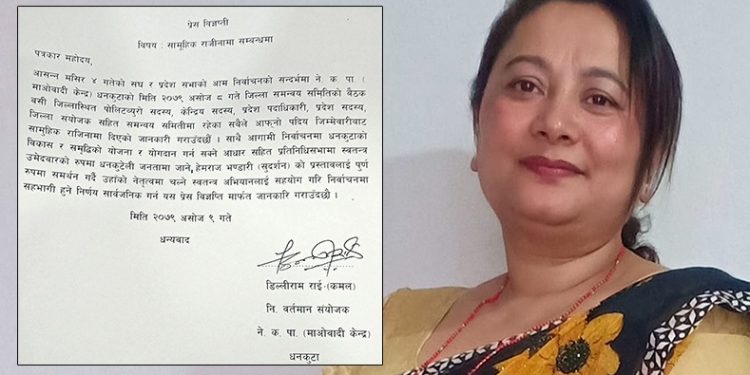 प्रेस विज्ञप्ती
विषय : सामुहिक राजीनामा सम्बन्धमा
पत्रकार महोदय,
आसन्न मंसिर ४ गतेको संघ र प्रदेश सभाको आम निर्वाचनको सन्दर्भमा ने. क. पा (
माओवादी केन्द्र) धनकुटाको मिति २०७९ असोज ८ गते जिल्ला समन्वय समितिको बैठक
बसी जिल्लास्थित पोलिटव्युरो सदस्य, केन्द्रिय सदस्य, प्रदेश पदाधिकारी, प्रदेश सदस्य,
जिल्ला संयोजक सहित समन्वय समितीमा रहेका सबैले आफ्नो पदिय जिम्मेवारीबाट
सामुहिक राजिनामा दिएको जानकारी गराउँदछौं । साथै आगामी निर्वाचनमा धनकुटाको
विकास र समृद्धिको योजना र योगदान गर्न सक्ने आधार सहित प्रतिनिधिसभामा स्वतन्त्र
उमेदवारको रुपमा धनकुटेली जनतामा जाने, हेमराज भण्डारी (सुदर्शन) को प्रस्तावलाई पुर्ण
रुपमा समर्थन गर्दै उहाँको नेतृत्वमा चल्ने स्वतन्त्र अभियानलाई सहयोग गरि निर्वाचनमा
सहभागी हुने निर्णय सार्वजनिक गर्न यस प्रेस विज्ञप्ति मार्फत जानकारि गराउँदछौ ।
मिति २०७९ असोज ९ गते
धन्यवाद
डिल्लीराम राई-(कमल)
नि. वर्तमान संयोजक
ने. क. पा. (माओवादी केन्द्र)
धनकुटा